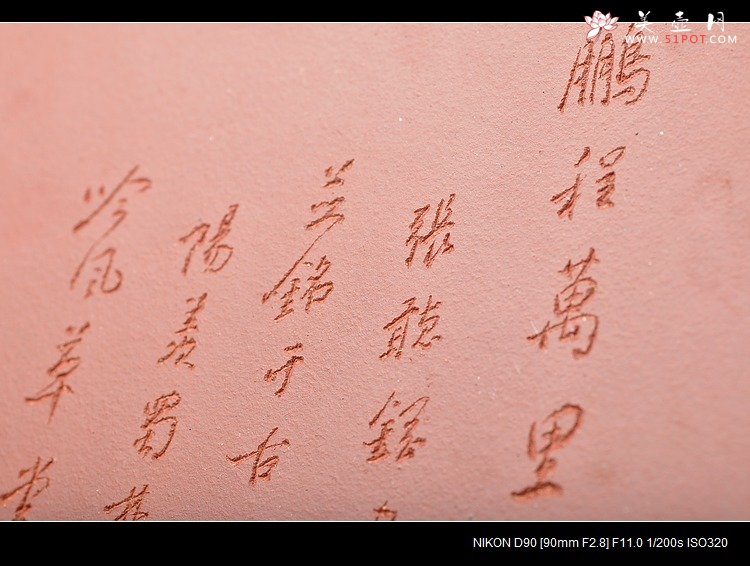 美壶网
WWW.51POT.COM
鵬程萬里
張聽銘
兰銘于古
陽羨蜀
冷风草堂
NIKON D90 [90mm F2.8] F11.0 1/200s ISO320